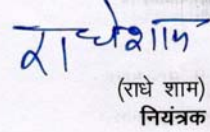 राधेशाम
(राधे शाम)
नियंत्रक